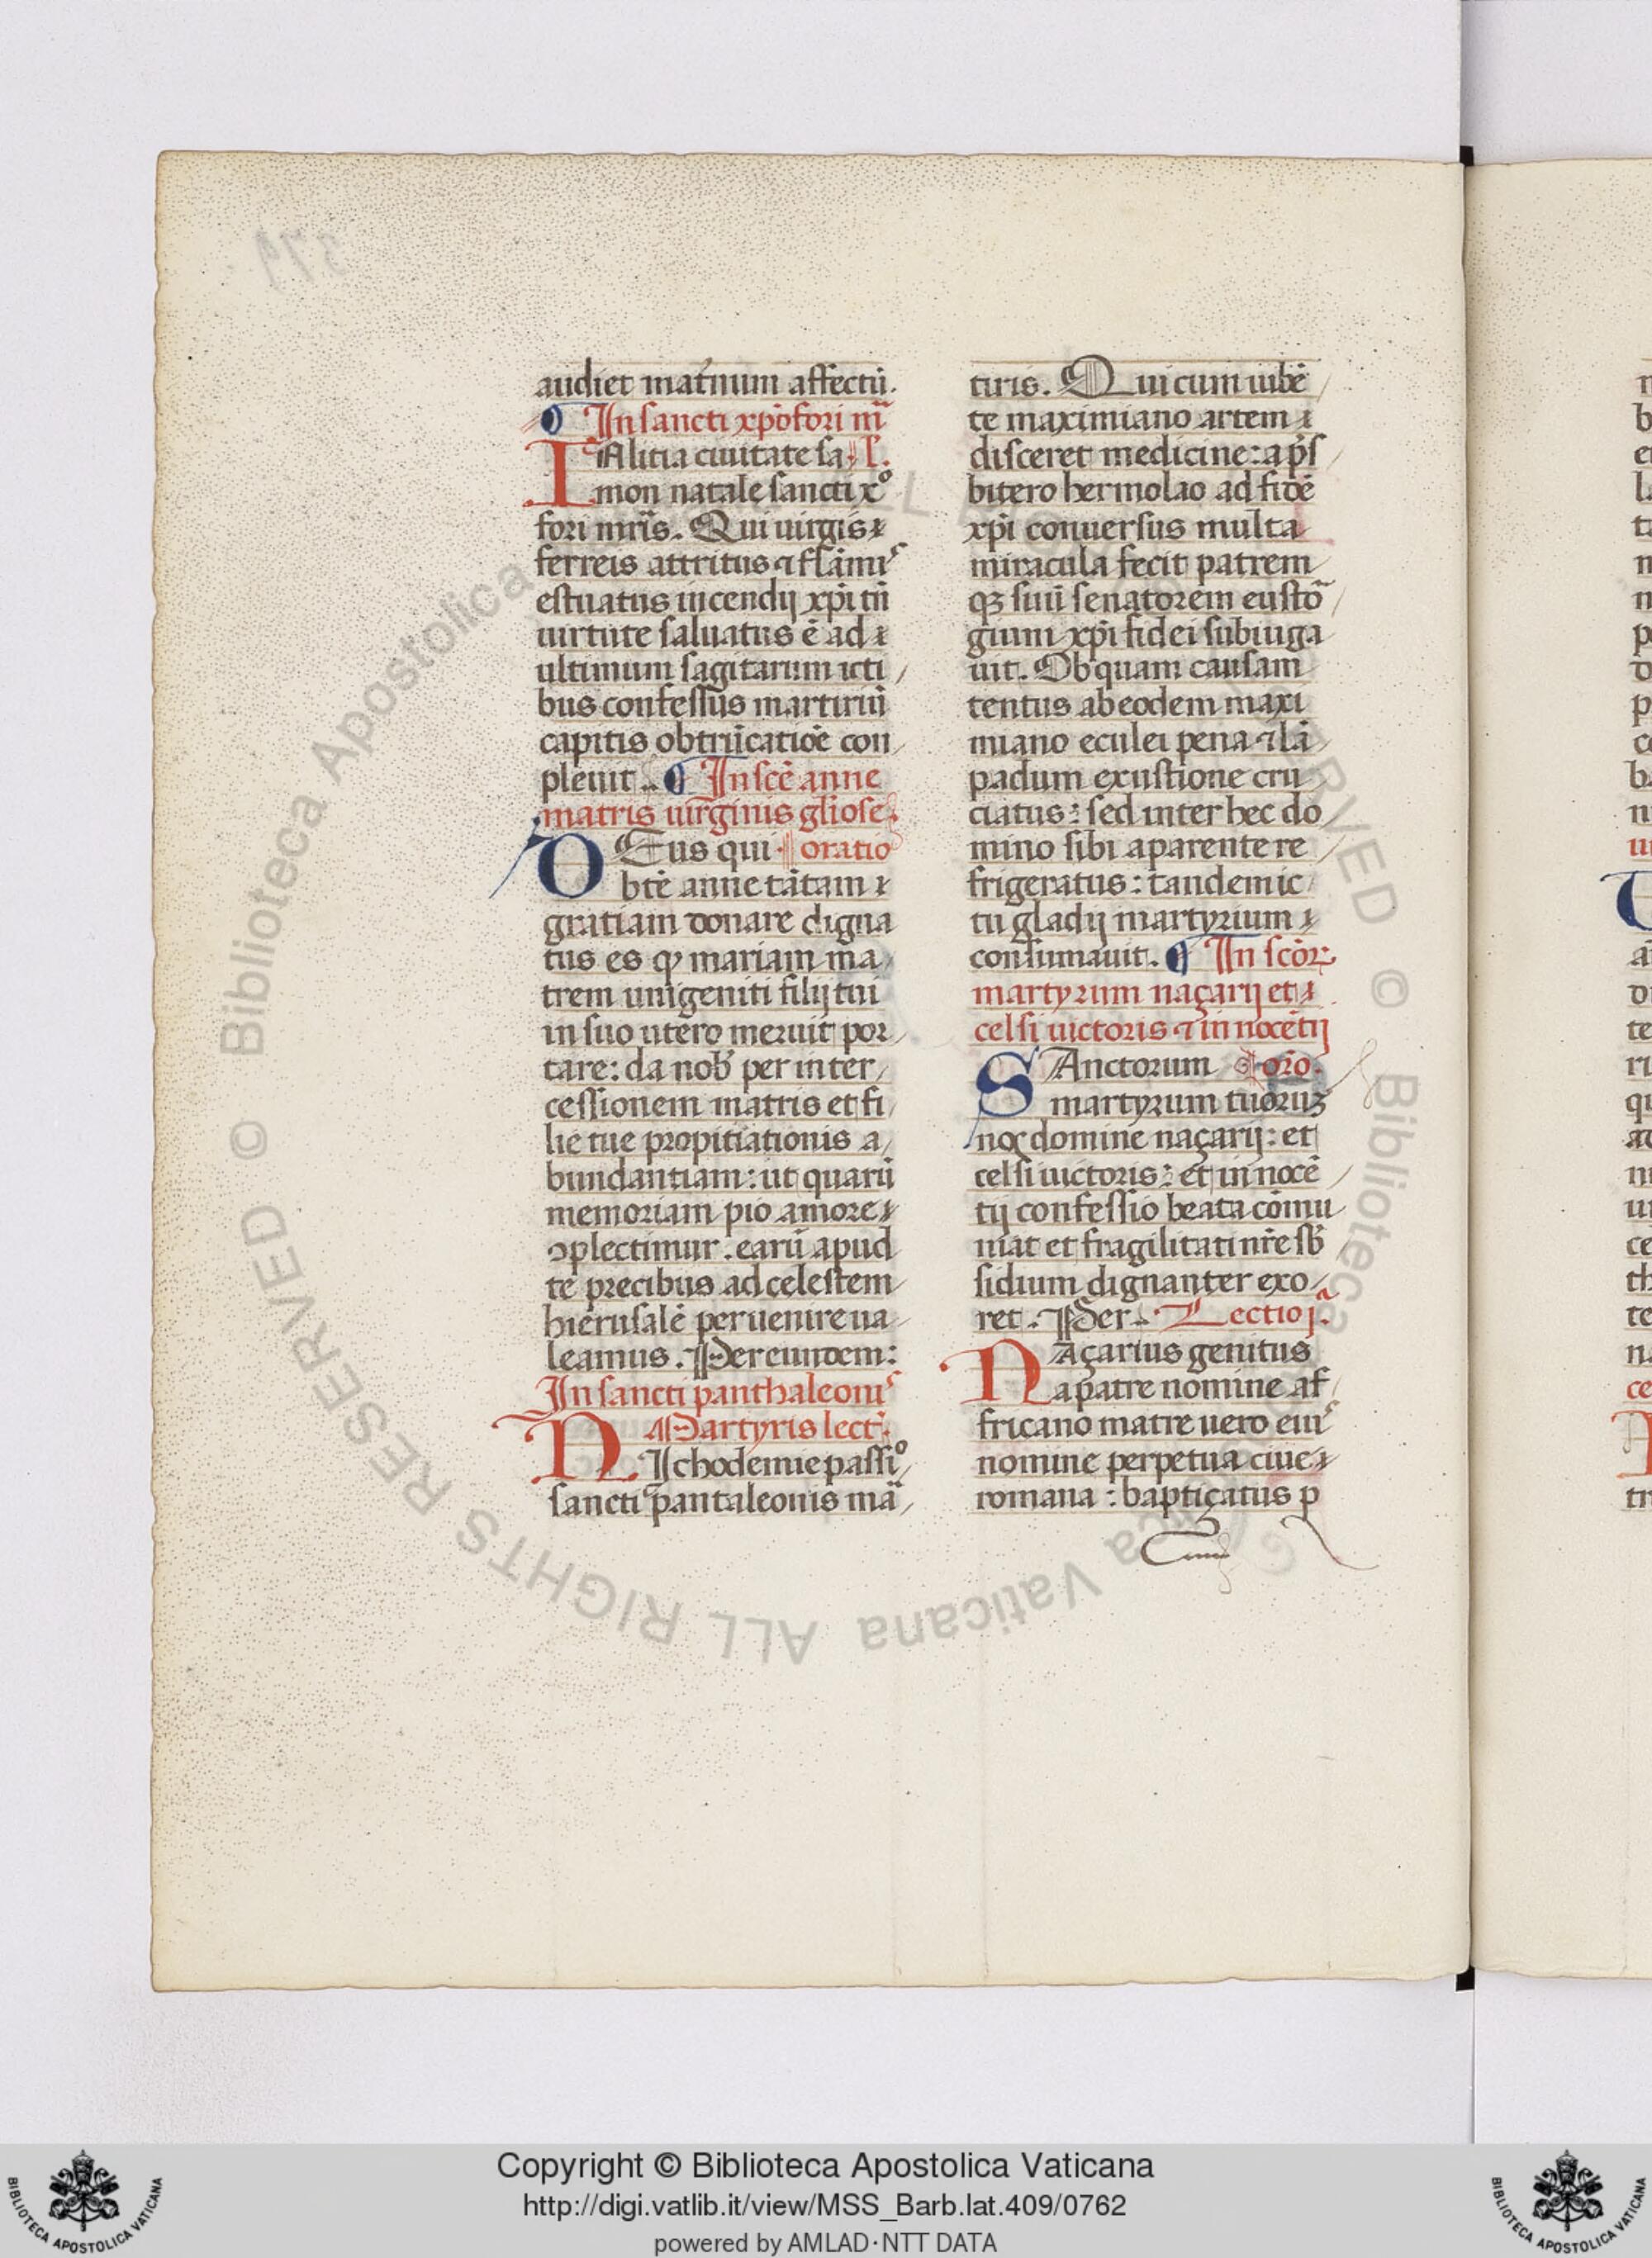 audiet mat̉num affectū.
¶ In sancti xp̄ofori m̄
IN licia ciuitate sa l̓.
mon natale sancti xº
fori mr̄is. Qui uirgis
ferreis attritus ⁊ flām̄i⁹
estuatus incendij xp̄i tn̄
uirtute saluatus ē ad
ultimum sagitarum icti
bus confessus martiriū
capitis obtrūcatiōe con
pleuit. ¶ In scē anne
matris uirginis gliose
DEus qui oratio
btē anne tātam
gratiam donare digna
tus es ꝙ mariam ma
trem unigeniti filij tui
in suo utero meruit por
tare: da nob̓ per inter
cessionem matris et fi
lie tue propitiationis a
bundantiam: ut quarū
memoriam pio amore
ↄplectimur. earū apud
te precibus ad celestem
hierusalē peruenire ua
leamus. Per eundem:
In sancti panthaleoni⁹
Martyris lect̓.
NIchodemie passiº
sancti pantaleonis mā
tiris. Qui cum iubē
te maximiano artem
disceret medicine: a p̄s
bitero hermolao ad fidē
xp̄i conuersus multa
miracula fecit patrem
qȝ suū senatorem eustō
gium xp̄i fidei subiuga
uit. Ob quam causam
tentus ab eodem maxi
miano eculei pena ⁊ lā
padum exustione cru
ciatus: sed inter hec do
mino sibi aparente re
frigeratus: tandem ic
tu gladij martyrium
consumauit. ¶ In scōꝝ
martyrum naçarij et
celsi uictoris ⁊ innocētij
SAnctorum oro.
martyrum tuoruȝ
noꝝ domine naçarij: et
celsi uictoris: et innocē
tij confessio beata cōmu
niat et fragilitati nr̄e sb̓
sidium dignanter exo
ret. Per. Lectio jª.
NAçarius genitus
a patre nomine af
fricano matre uero eiu⁹
nomine perpetua ciue
romana: baptiçatus p
Copyright © Biblioteca Apostolica Vaticana
http://digi.vatlib.it/view/MSS_Barb.lat.409/0762
powered by AMLAD·NTT DATA